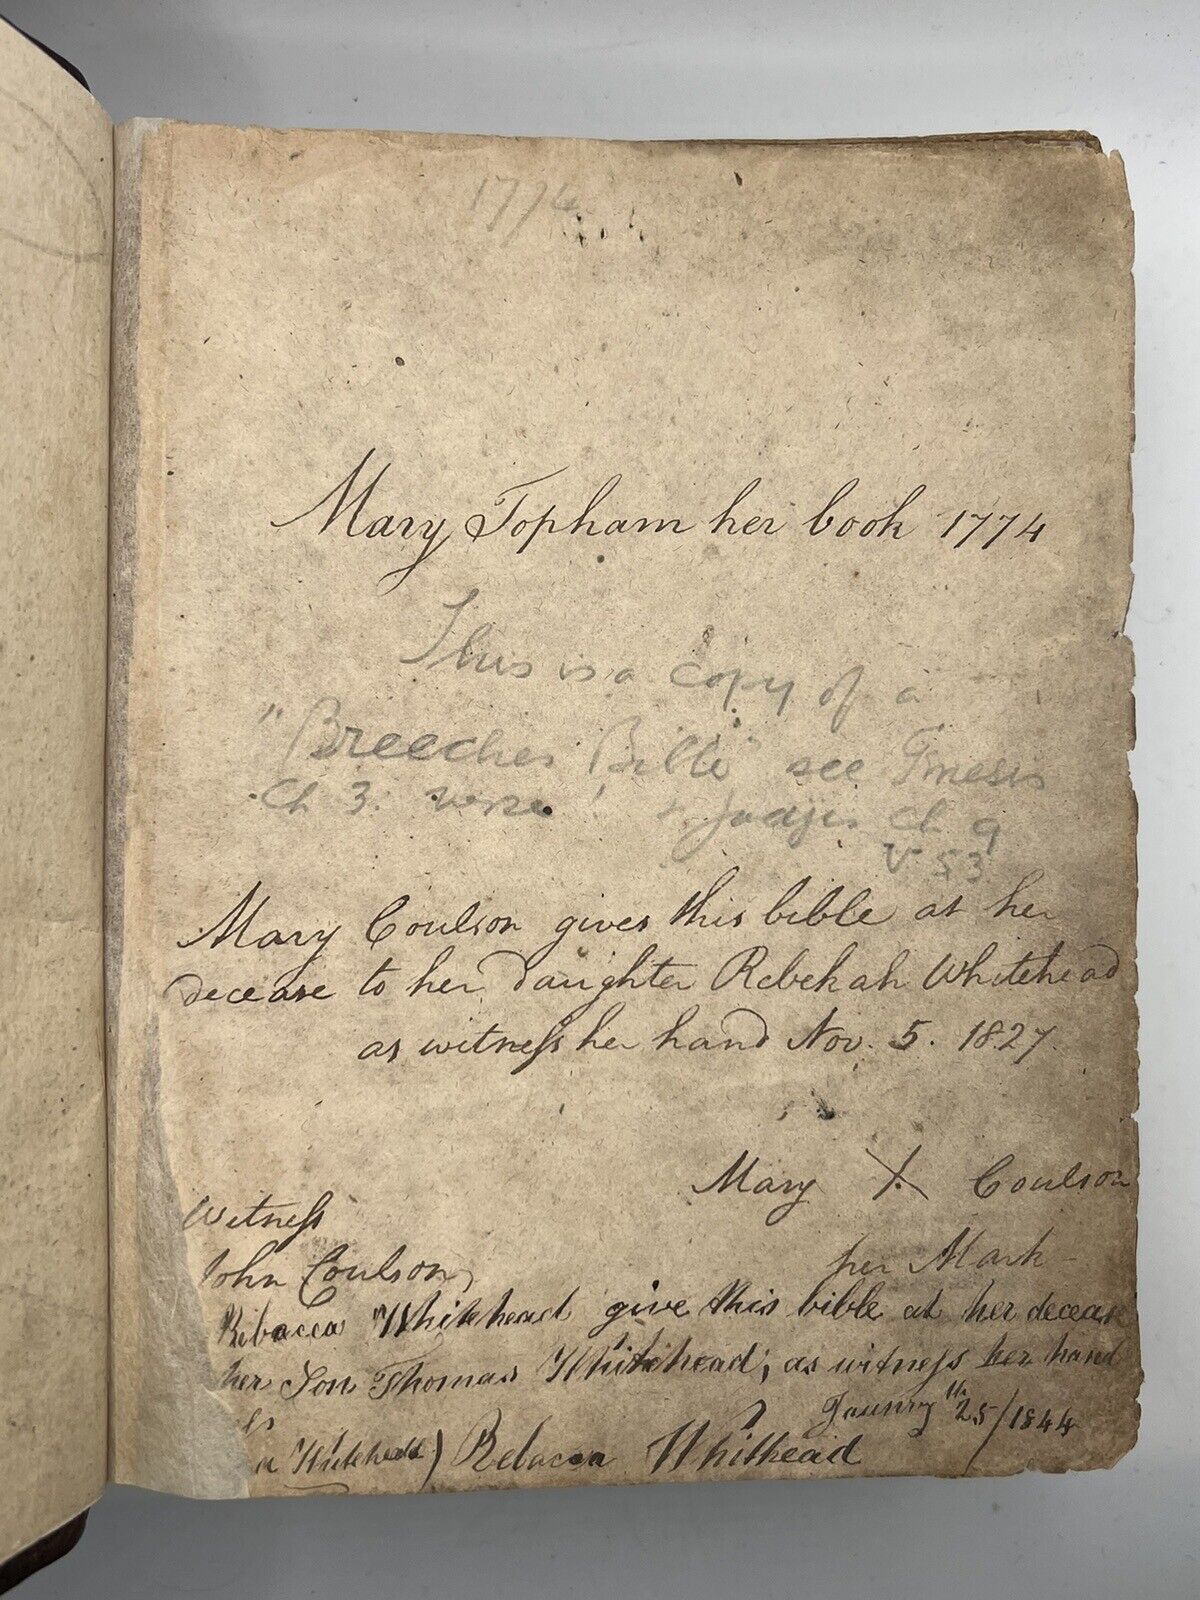 1774
Mary Topham her book 1774
This is a copy of a
"Breeches Bible" see Genesis
Ch 3. verse + Judges Ch 9
V 53
Mary Coulson gives this bible at her
decease to her daughter Rebekah Whitehead
as witness her hand Nov. 5. 1827.
Mary X Coulson
Witness
her Mark
John Coulson
Rebacca Whitehead give this bible at her deceas
her Son Thomas Whitehead; as witness her hand
January 25th/1844
Whitehead) Rebacca Whithead